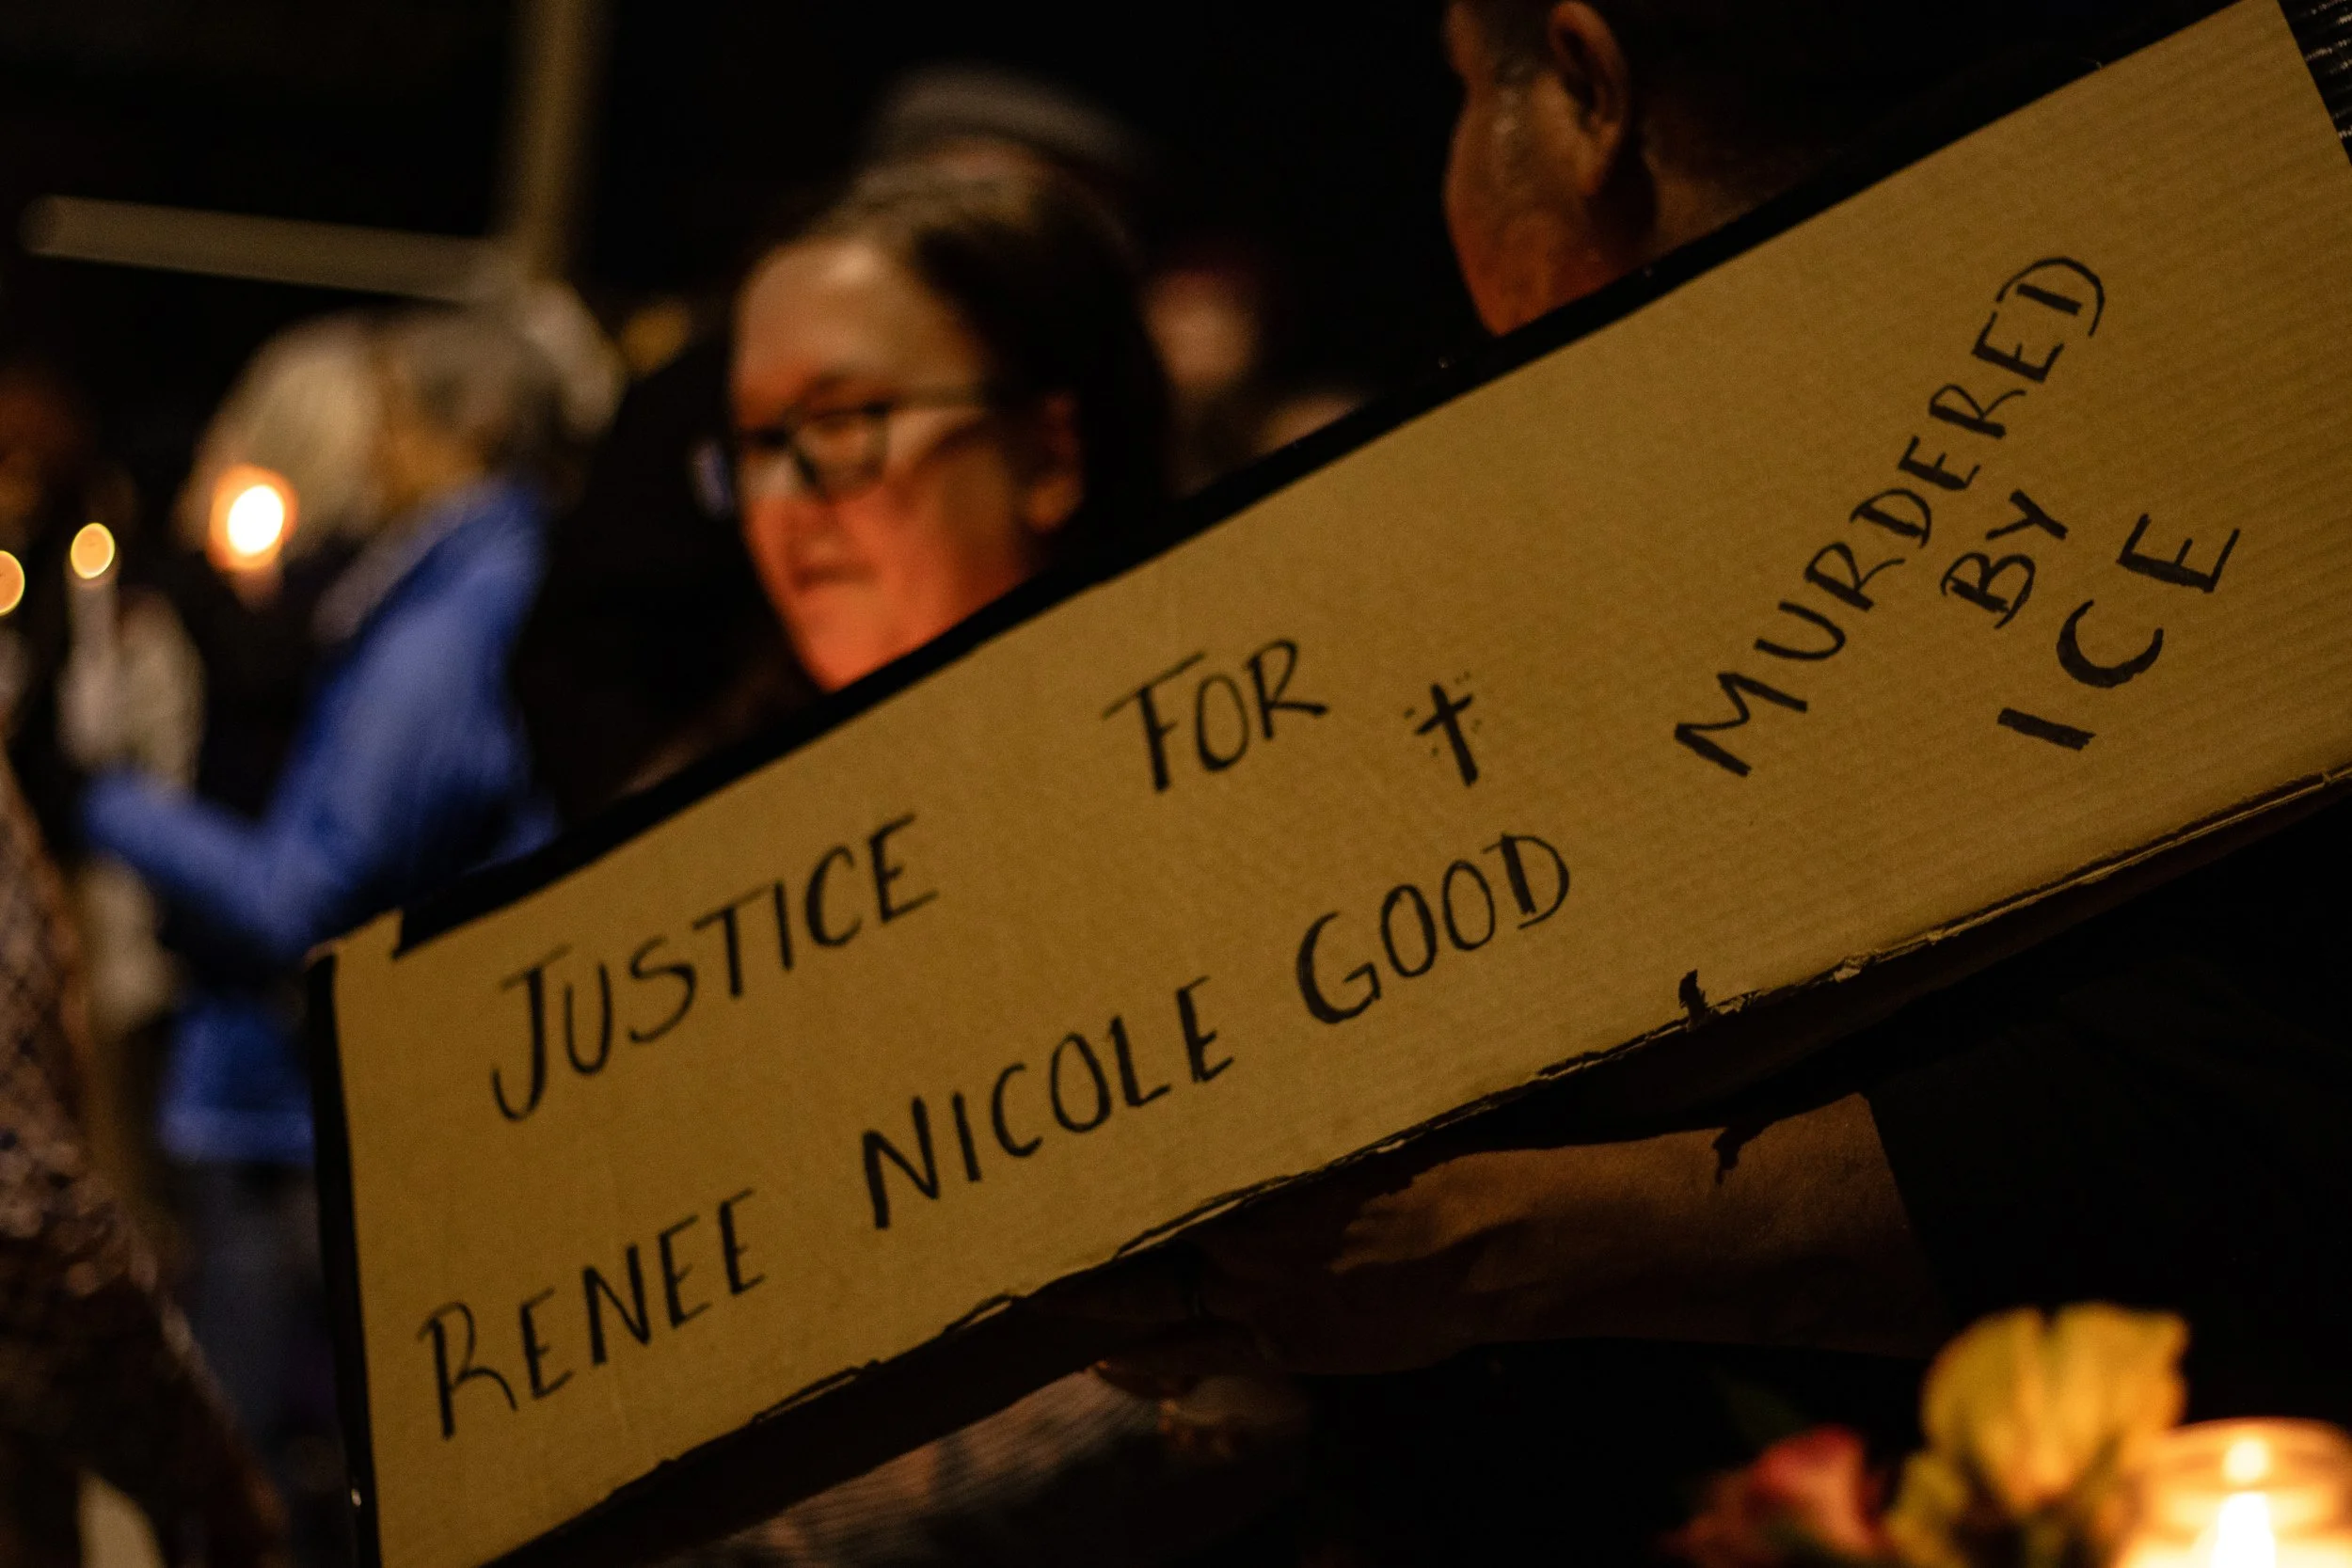 JUSTICE FOR
RENEE NICOLE GOOD
MURDERED
BY
ICE